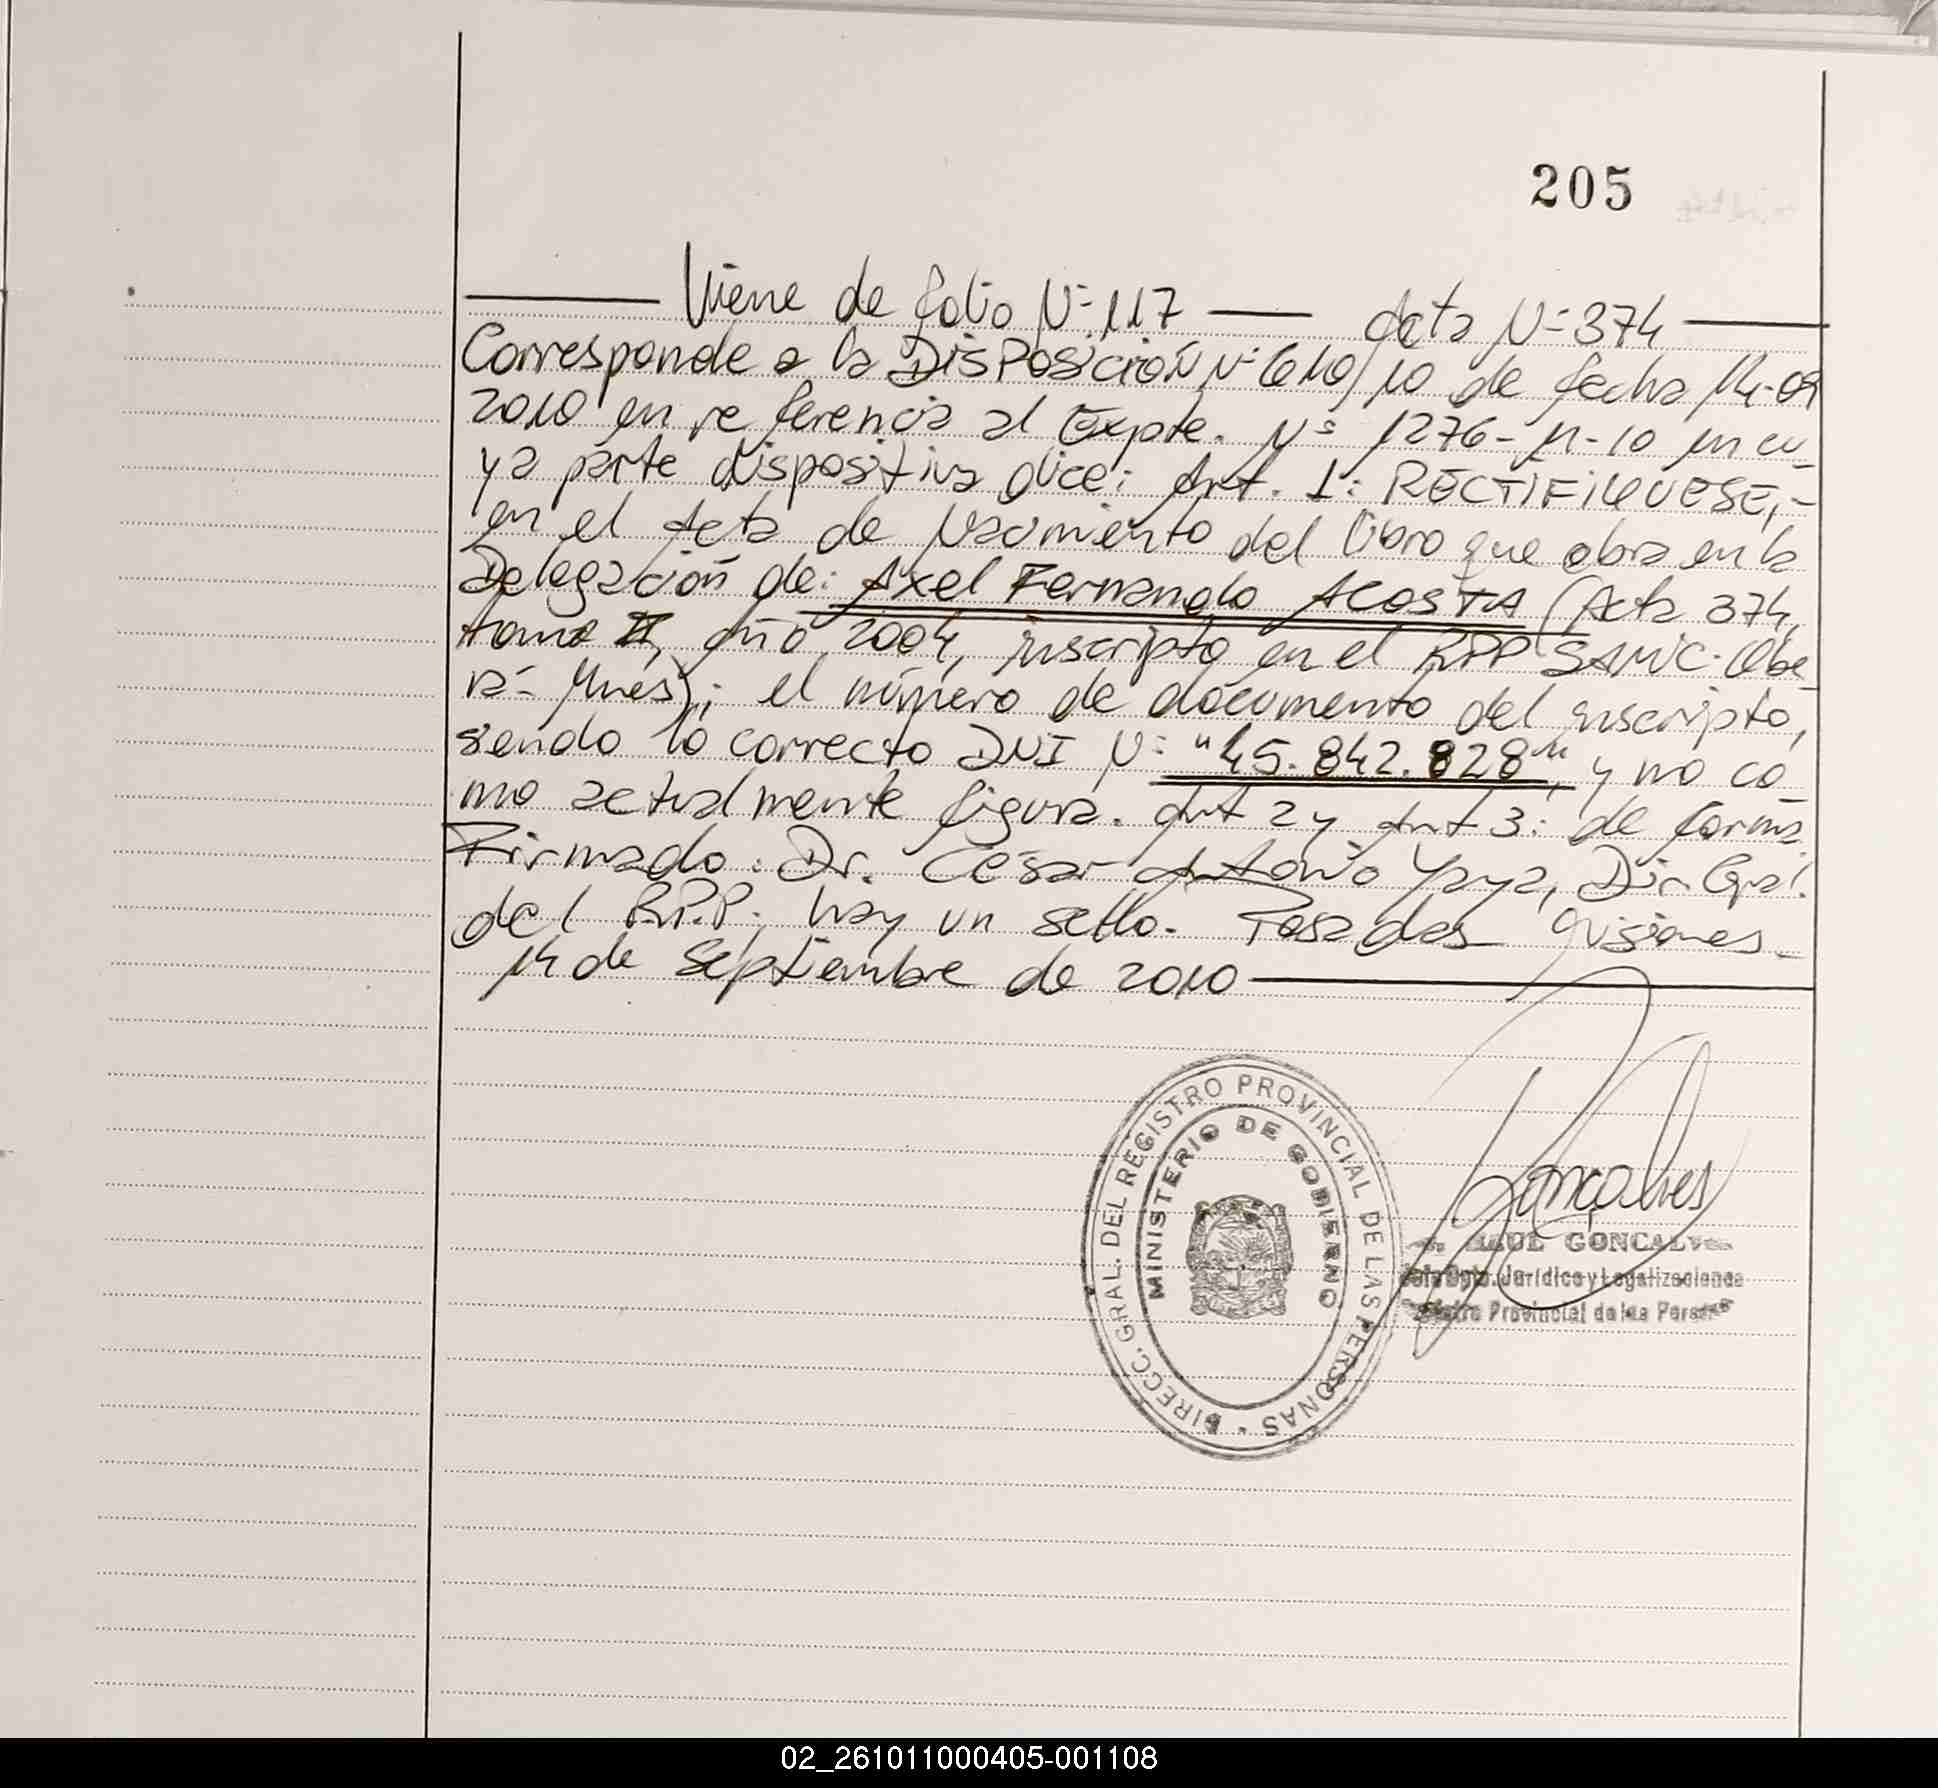 205
Viene de folio Nº 117 — Acta Nº 374
Corresponde a la DisPosición Nº 610/10 de fecha 14-09
2010 en referencia al Expte. Nº 1276-M-10 en cu-
ya parte dispositiva dice: Art. 1: RECTIFIQUESE,-
en el Acta de Nacimiento del libro que obra en la
Delegación de: Axel Fernando ACOSTA (Acta 374,
tomo II, año 2004, inscripto en el RPP SAMIC. Obe
rá- Mnes); el número de documento del inscripto,
siendo lo correcto DNI Nº "45.842.828", y no co
mo actualmente figura. Art 2 y Art 3: de forma.
Firmado: Dr. César Antonio Yaya, Dir. Gral.
del R.P.P. hay un sello. Posadas Misiones
14 de Septiembre de 2010
DIRECC. GRAL. DEL REGISTRO PROVINCIAL DE LAS PERSONAS
MINISTERIO DE GOBIERNO
Gonçalves
RAUL GONCALVES
Dpto. Jurídico y Legalizaciones
Provincial de las Personas
02_261011000405-001108